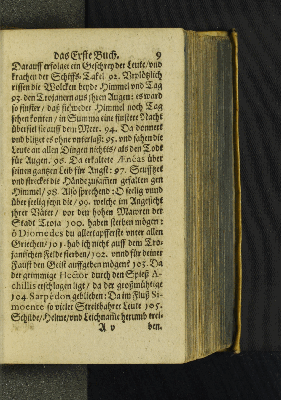 das Erste Buch. 9
Darauff erfolget ein Geschrey der Leute / vnd
krachen der Schiffs-Takel 92. Vrplötzlich
rissen die Wolcken beyde Himmel vnd Tag
93. den Trojanern aus jhren Augen: es ward
so finster / daß sie weder Himmel noch Tag
sehen konten / in Summa eine finstere Nacht
überfiel sie auff dem Meer. 94. Da donnert
vnd blitzet es ohne unterlaß: 95. vnd sahen die
Leute an allen Dingen nichtes / als den Todt
für Augen. 96. Da erkaltete Æneas über
seinen gantzen Leib für Angst: 97. Seufftzet
vnd strecket die Hände zusamen gefalten gen
Himmel / 98. Also sprechend: O seelig vnnd
über seelig seyn die / 99. welche im Angesicht
jhrer Väter / vor den hohen Mawren der
Stadt Troia 100. haben sterben mögen:
ô Diomedes du allertapfferste vnter allen
Griechen / 101. hab ich nicht auff dem Tro-
janischen Felde sterben / 102. vnnd für deiner
Faust den Geist auffgeben mögen? 103. Da
der grimmige Hector durch den Spieß A-
chillis erschlagen ligt / da der großmühtige
104. Sarpedon geblieben: Da im Fluß Si-
moënte so vieler Streitbahrer Leute 105.
Schilde / Helme / vnd Leichname herumb trei-
A v ben.